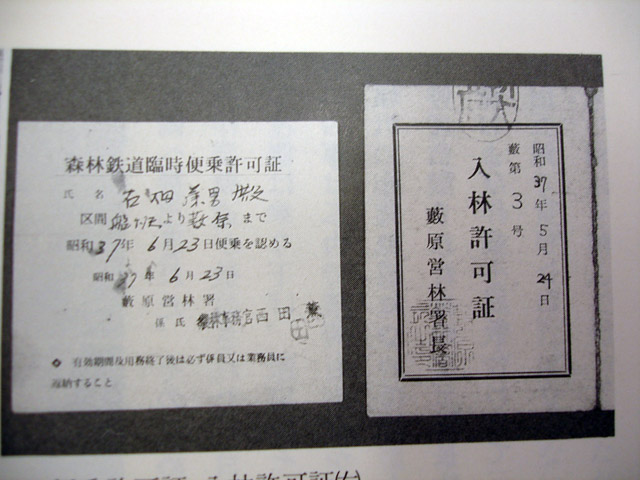 森林鉄道臨時便乗許可証
氏 名 石畑 男 殿
区間 より藪原まで
昭和37年6月23日便乗を認める
昭和37年6月23日
藪原営林署
係氏 西田
◇ 有効期間及用務終了後は必ず係員又は業務員に
返納すること
昭和37年5月24日
藪第3号
入林許可証
藪原営林署長